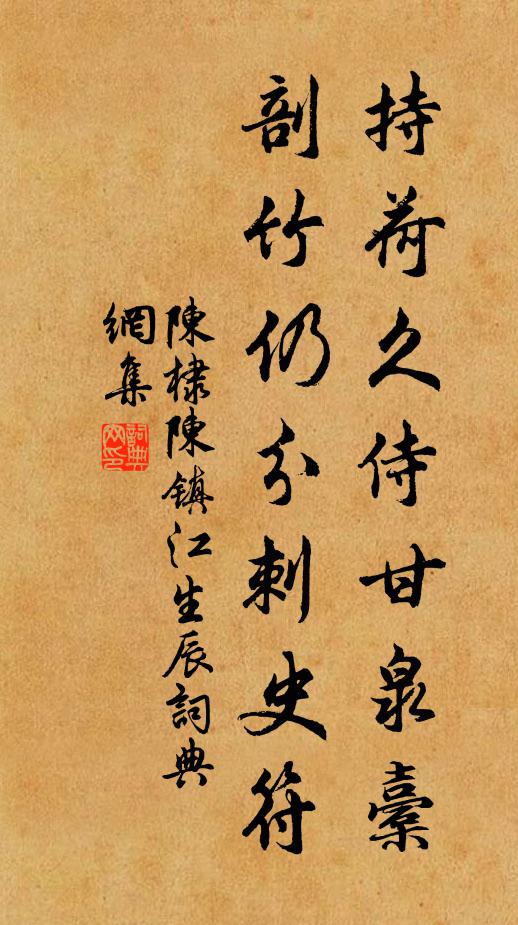 持荷久侍甘泉橐
剖竹仍分刺史符
陳棣陳鎮江生辰詞典
網集
詞典
网印